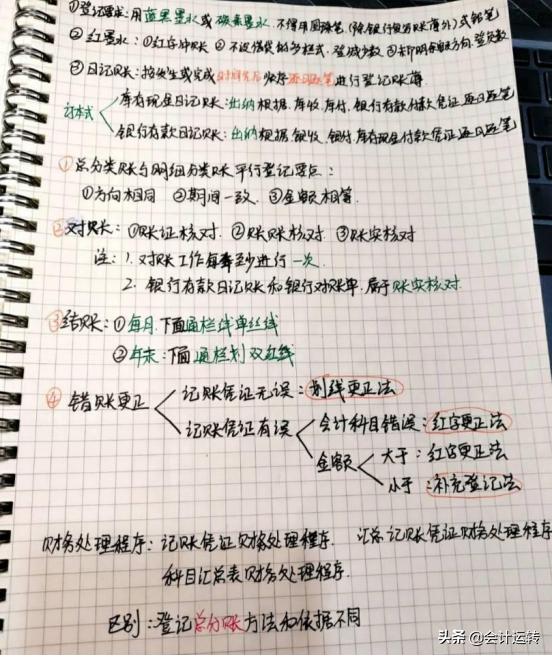 ①登记要求:用蓝黑墨水或碳素墨水,不得用圆珠笔(除银行复写账簿外)或铅笔
②红墨水:①红字冲账 ②不设借贷的多栏式,登减少数 ③未印明余额方向,登负数
③日记账:按发生或完成时间先后顺序逐日逐笔进行登记账簿
订本式 库存现金日记账:出纳根据,库收,库付,银行存款付款凭证逐日逐笔
银行存款日记账:出纳根据,银收,银付,库存现金付款凭证逐日逐笔
①总分类账与明细分类账平行登记要点:
①方向相同 ②期间一致 ③金额相等
②对账:①账证核对 ②账账核对 ③账实核对
注:1.对账工作每年至少进行一次
2.银行存款日记账和银行对账单,属于账实核对
③结账:①每月下面通栏线单红线
②年末:下面通栏划双红线
④错账更正 记账凭证无误:划线更正法
记账凭证有误 会计科目错误:红字更正法
金额 大于:红字更正法
小于:补充登记法
财务处理程序:记账凭证财务处理程序 汇总记账凭证财务处理程序
科目汇总表财务处理程序
区别:登记总分账方法和依据不同
头条 @会计运转